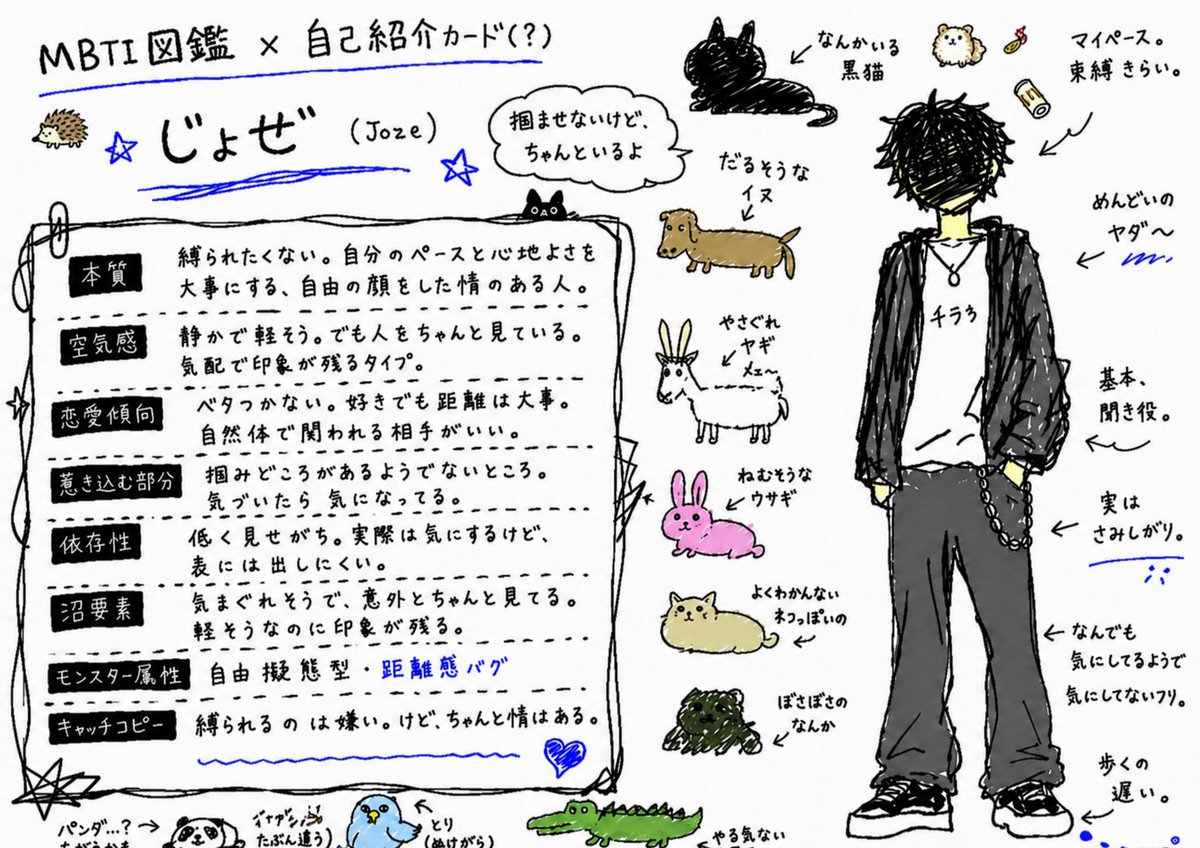 MBTI図鑑 × 自己紹介カード(?)
じょぜ (Joze)
掴ませないけど、
ちゃんといるよ
本質
縛られたくない。自分のペースと心地よさを
大事にする、自由の顔をした情のある人。
空気感
静かで軽そう。でも人をちゃんと見ている。
気配で印象が残るタイプ。
恋愛傾向
ベタつかない。好きでも距離は大事。
自然体で関われる相手がいい。
惹き込む部分
掴みどころがあるようでないところ。
気づいたら気になってる。
依存性
低く見せがち。実際は気にするけど、
表には出しにくい。
沼要素
気まぐれそうで、意外とちゃんと見てる。
軽そうなのに印象が残る。
モンスター属性
自由擬態型・距離感バグ
キャッチコピー
縛られるのは嫌い。けど、ちゃんと情はある。
なんかいる
黒猫
だるそうな
イヌ
やさぐれ
ヤギ
メェ〜
ねむそうな
ウサギ
よくわかんない
ネコっぽいの
ぼさぼさの
なんか
マイペース。
束縛きらい。
めんどいの
ヤダ〜
チラ3
基本、
聞き役。
実は
さみしがり。
なんでも
気にしてるようで
気にしてないフリ。
歩くの
遅い。
パンダ…?
たぶん違う)
とり
(ぬけがら)
やる気ない